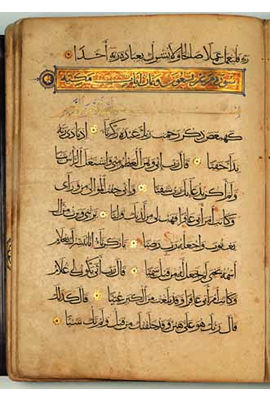 ربه فليعمل عملا صالحا ولا يشرك بعبادة ربه احدا
سورة مريم تسعون وثمان ايات مكية
كهيعص ذكر رحمت ربك عبده زكريا اذ نادى ربه
نداء خفيا قال رب اني وهن العظم مني واشتعل الراس شيبا
ولم اكن بدعائك رب شقيا واني خفت الموالي من وراي
وكانت امراتي عاقرا فهب لي من لدنك وليا يرثني ويرث من ال
يعقوب واجعله رب رضيا يا زكريا انا نبشرك بغلام
اسمه يحيى لم نجعل له من قبل سميا قال رب انى يكون لي غلام
وكانت امراتي عاقرا وقد بلغت من الكبر عتيا قال كذلك
قال ربك هو علي هين وقد خلقتك من قبل ولم تك شيئا